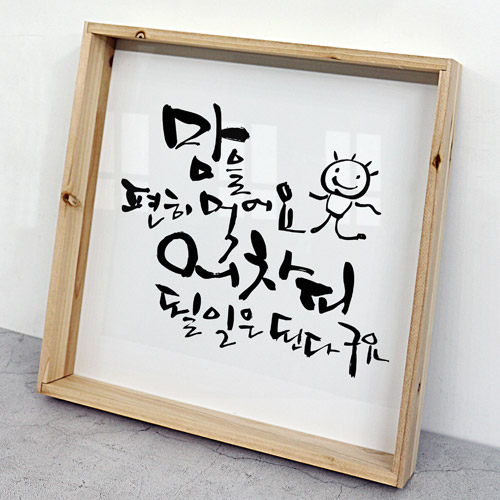 맘을
편히 먹어요
어차쉬
될일은 된다구요